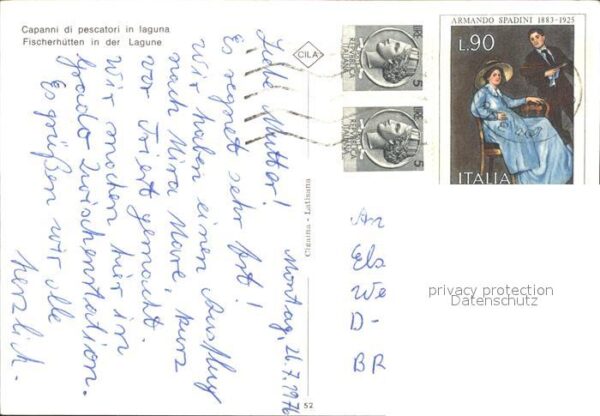 Capanni di pescatori in laguna
Fischerhütten in der Lagune
CILA
Cigaina - Latisana
52
Montag, 26.7.1976
Liebe Mutter!
Es regnet sehr fest!
Wir haben einen Ausflug
nach Mira Mare, kurz
vor Triest gemacht.
Wir machen hier in
Grado Zwischenstation.
Es grüßen wir alle
herzlich.
ARMANDO SPADINI 1883-1925
L.90
ITALIA
5
5
An
Els
We
D-
BR
privacy protection
Datenschutz